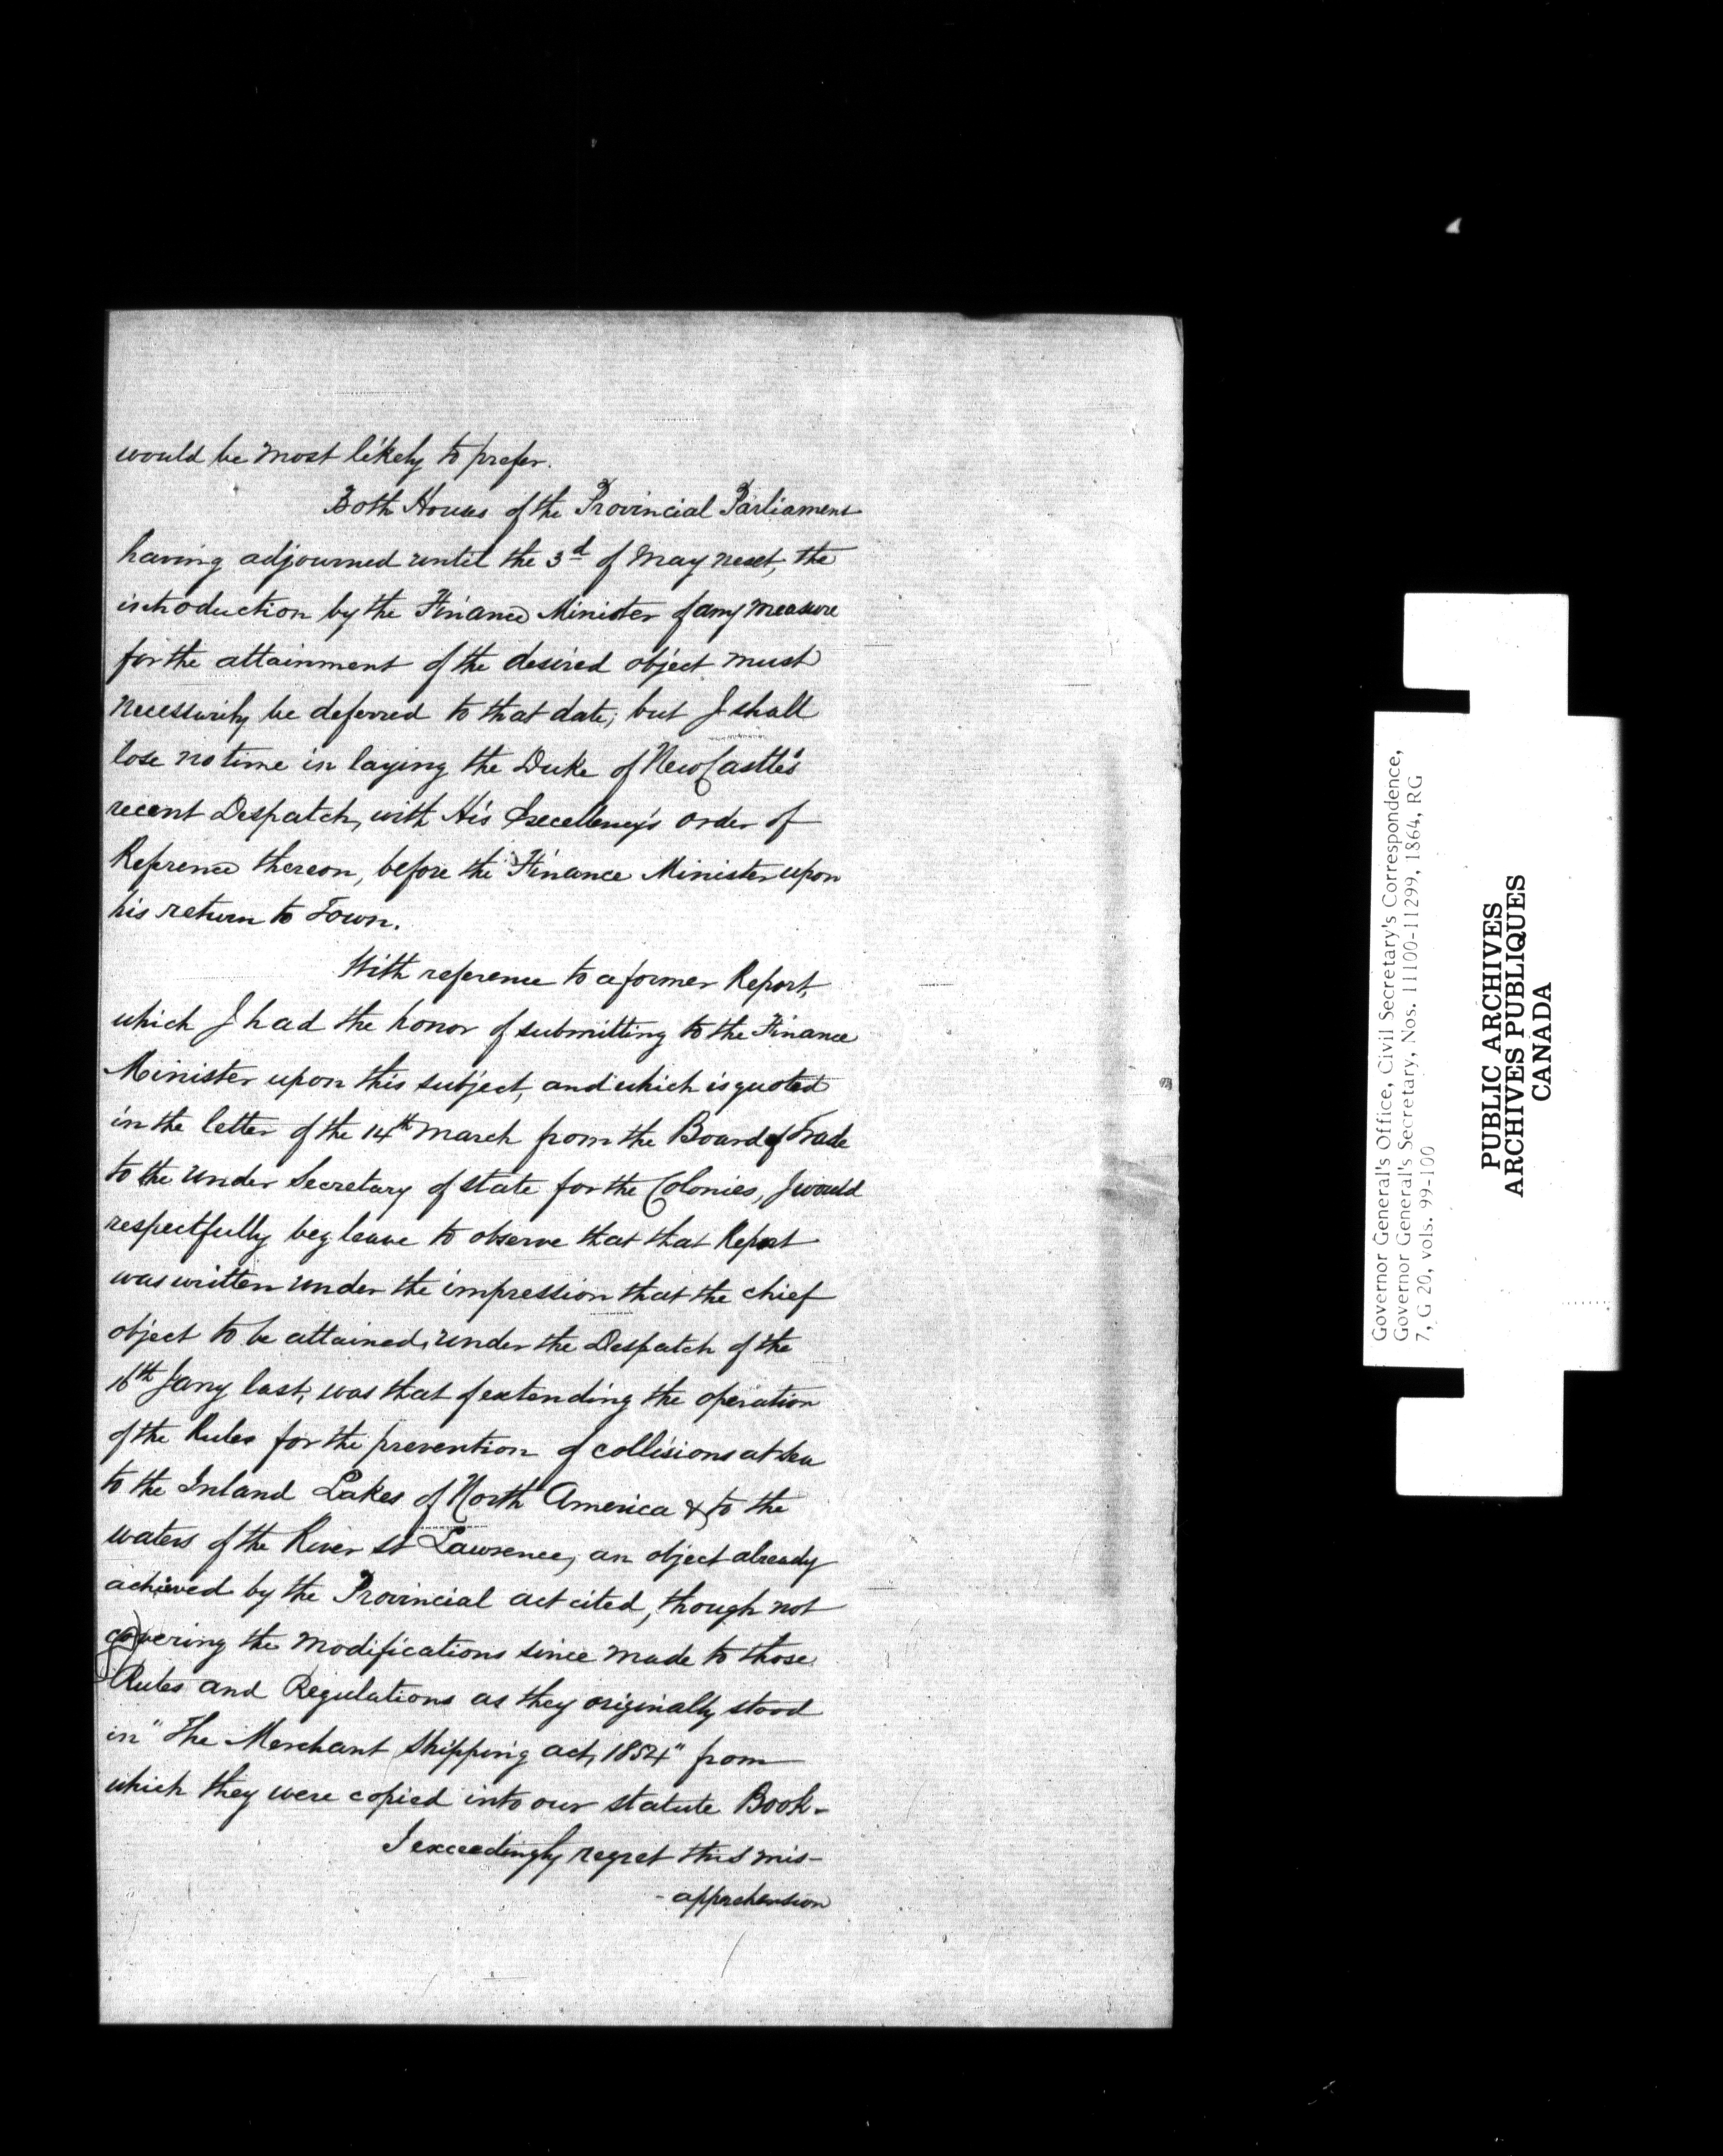 would be most likely to prefer.
Both Houses of the Provincial Parliament
having adjourned until the 3d of May next, the
introduction by the Finance Minister of any measure
for the attainment of the desired object must
necessarily be deferred to that date; but I shall
lose no time in laying the Duke of NewCastle's
recent Despatch, with His Excellency's order of
Reference thereon, before the Finance Minister upon
his return to Town.
With reference to a former Report,
which I had the honor of submitting to the Finance
Minister upon this subject, and which is quoted
in the letter of the 14th March from the Board of Trade
to the Under Secretary of State for the Colonies, I would
respectfully beg leave to observe that that Report
was written under the impression that the chief
object to be attained, under the Despatch of the
16th Jany last, was that of extending the operation
of the Rules for the prevention of collisions at Sea
to the Inland Lakes of North America & to the
waters of the River St Lawrence, an object already
achieved by the Provincial act cited, though not
covering the modifications since made to those
Rules and Regulations as they originally stood
in "The Merchant Shipping act, 1854" from
which they were copied into our Statute Book.
I exceedingly regret this mis-
-apprehension
Governor General's Office, Civil Secretary's Correspondence,
Governor General's Secretary, Nos. 11100-11299, 1864, RG
7, G 20, vols. 99-100
PUBLIC ARCHIVES
ARCHIVES PUBLIQUES
CANADA